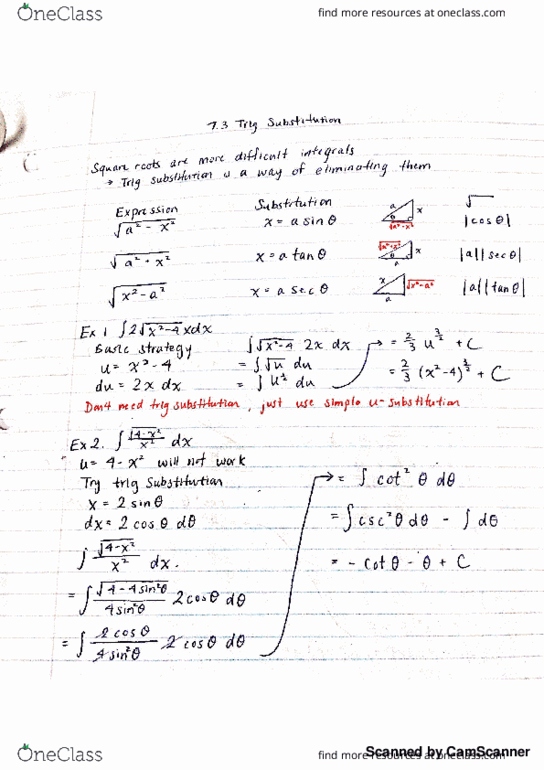 OneClass
find more resources at oneclass.com
7.3 Trig Substitution
Square roots are more difficult integrals
→ Trig substitution is a way of eliminating them
Expression Substitution √
√a² - x² x = a sin θ a x θ √a²-x² |cos θ|
√a² + x² x = a tan θ √a²+x² x θ a |a||sec θ|
√x² - a² x = a sec θ x √x²-a² a |a||tan θ|
Ex 1 ∫2√x²-4 x dx
Basic strategy
u = x² - 4
du = 2x dx
∫√x²-4 2x dx
= ∫√u du
= ∫ u^½ du
= 2/3 u^3/2 + C
= 2/3 (x²-4)^3/2 + C
Don't need trig substitution, just use simple u-substitution
Ex 2. ∫ √4-x²/x² dx
u = 4 - x² will not work
Try trig Substitution
x = 2 sin θ
dx = 2 cos θ dθ
∫ √4-x²/x² dx.
= ∫ √4-4sin²θ/4sin²θ 2cos θ dθ
= ∫ 2 cos θ/4 sin²θ 2 cos θ dθ
= ∫ cot² θ dθ
= ∫csc²θ dθ - ∫ dθ
= - cot θ - θ + C
OneClass
find more resources at oneclass.com
Scanned by CamScanner